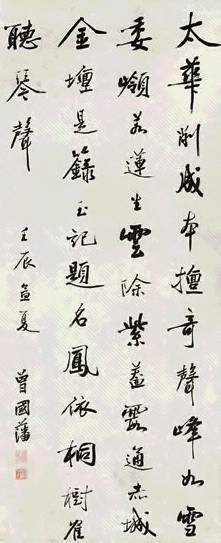 太華削成本擅奇聲峰如雪
委嶺若蓮生雲除紫蓋霞通赤城
金壇是籙玉記題名鳳依桐樹崔
聽琴聲
壬辰宜夏 曾國藩